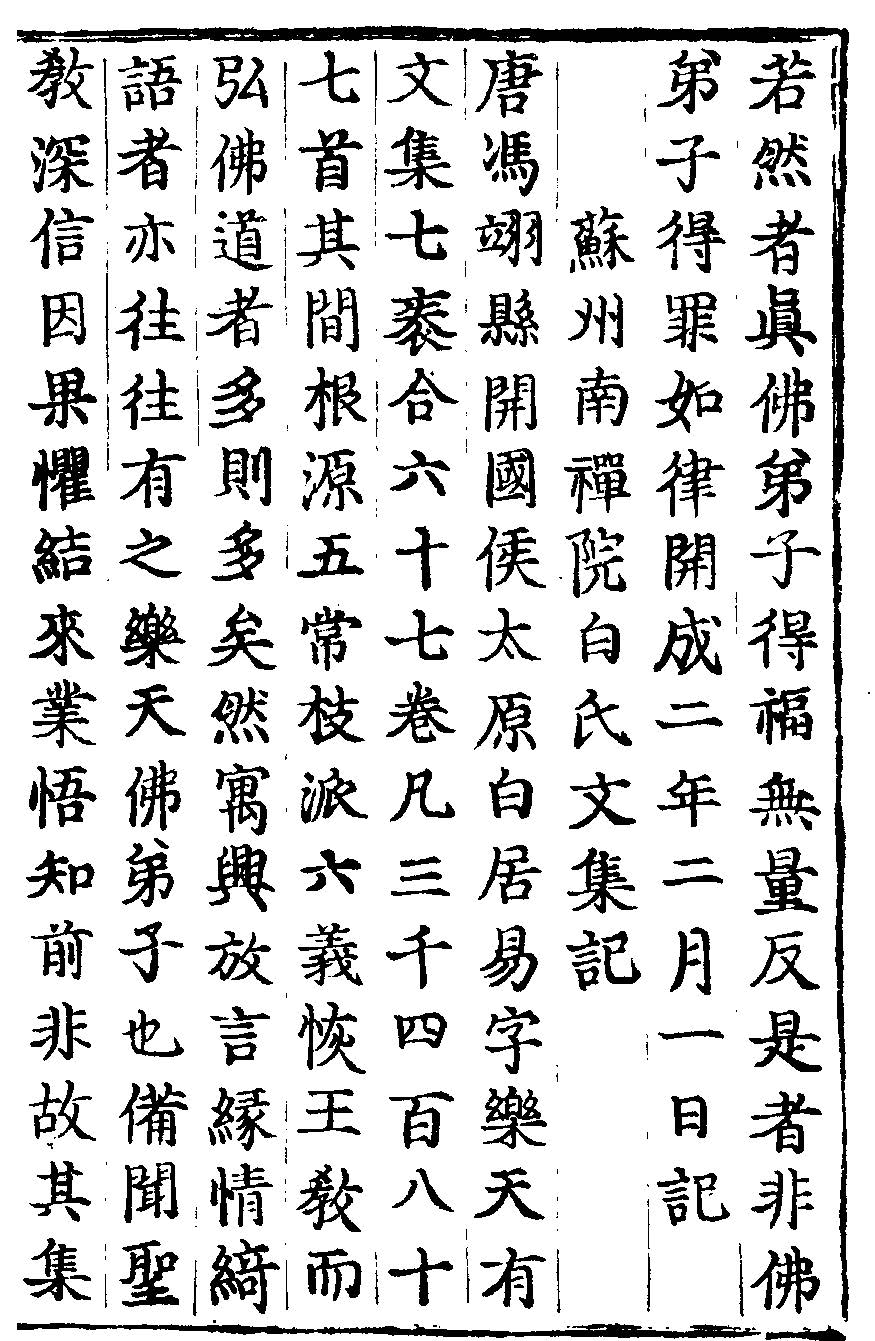 若然者眞佛弟子得福無量反是者非佛
弟子得罪如律開成二年二月一日記
蘇州南禪院白氏文集記
唐馮翊縣開國侯太原白居易字樂天有
文集七袠合六十七卷凡三千四百八十
七首其間根源五常枝派六義恢王敎而
弘佛道者多則多矣然寓興放言緣情綺
語者亦往往有之樂天佛弟子也備聞聖
敎深信因果懼結來業悟知前非故其集